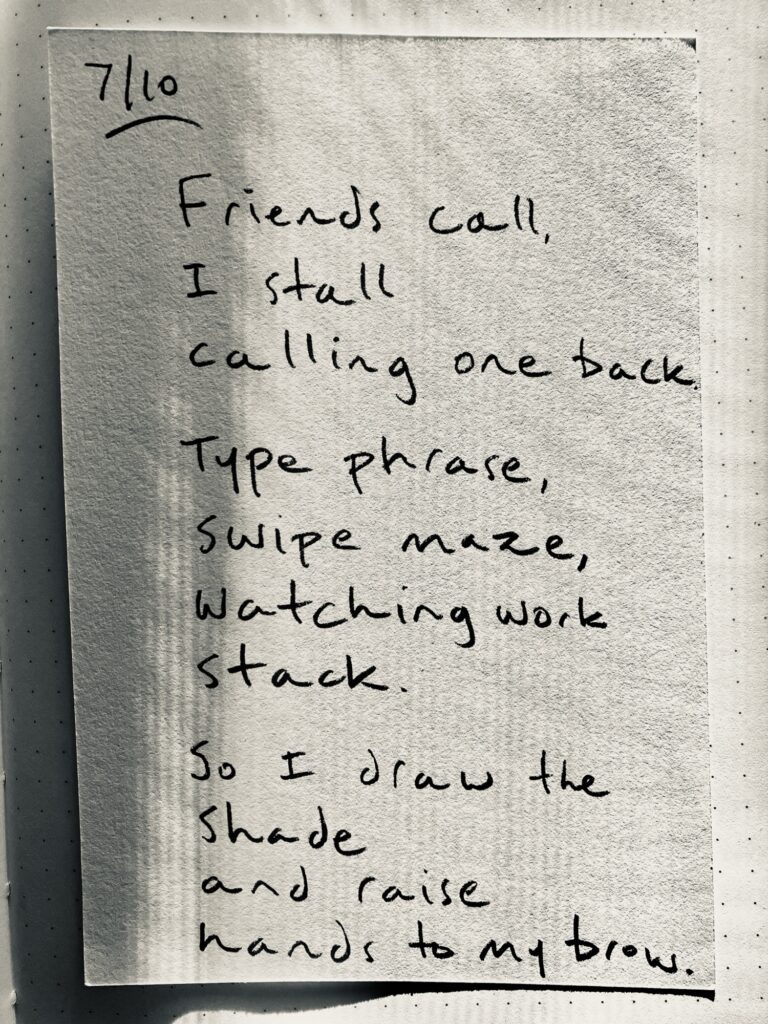 7/10
Friends call,
I stall
calling one back.
Type phrase,
swipe maze,
watching work
stack.
So I draw the
shade
and raise
hands to my brow.